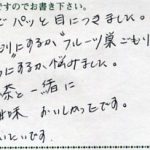 ですのでお書き下さい。
でパッと目につきました。
別にするか"フルーツ巣ごもり
にするか悩みました。
茶と一緒に
味 おいしかったです。
いたいです。